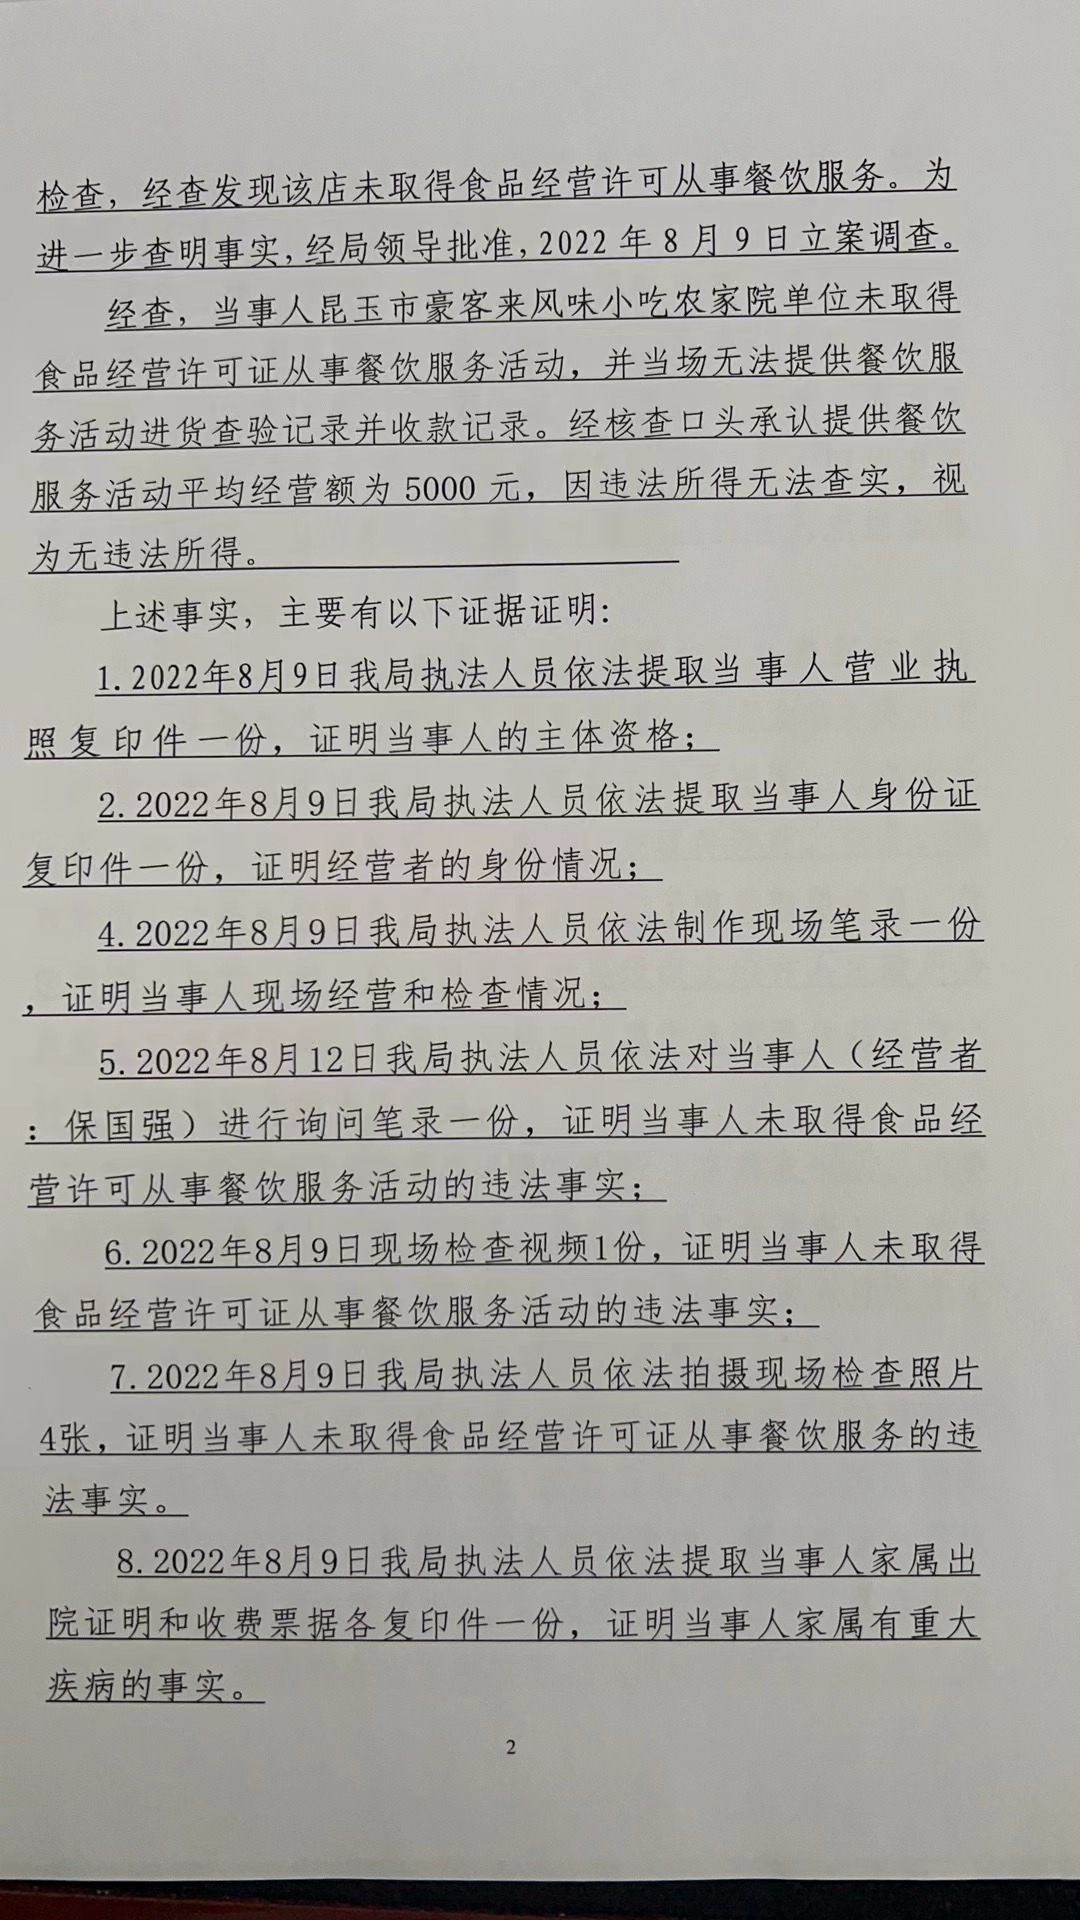 检查，经查发现该店未取得食品经营许可从事餐饮服务。为
进一步查明事实，经局领导批准，2022年8月9日立案调查。
经查，当事人昆玉市豪客来风味小吃农家院单位未取得
食品经营许可证从事餐饮服务活动，并当场无法提供餐饮服
务活动进货查验记录并收款记录。经核查口头承认提供餐饮
服务活动平均经营额为5000元，因违法所得无法查实，视
为无违法所得。
上述事实，主要有以下证据证明：
1.2022年8月9日我局执法人员依法提取当事人营业执
照复印件一份，证明当事人的主体资格；
2.2022年8月9日我局执法人员依法提取当事人身份证
复印件一份，证明经营者的身份情况；
4.2022年8月9日我局执法人员依法制作现场笔录一份
，证明当事人现场经营和检查情况；
5.2022年8月12日我局执法人员依法对当事人（经营者
：保国强）进行询问笔录一份，证明当事人未取得食品经
营许可从事餐饮服务活动的违法事实；
6.2022年8月9日现场检查视频1份，证明当事人未取得
食品经营许可证从事餐饮服务活动的违法事实；
7.2022年8月9日我局执法人员依法拍摄现场检查照片
4张，证明当事人未取得食品经营许可证从事餐饮服务的违
法事实。
8.2022年8月9日我局执法人员依法提取当事人家属出
院证明和收费票据各复印件一份，证明当事人家属有重大
疾病的事实。
2